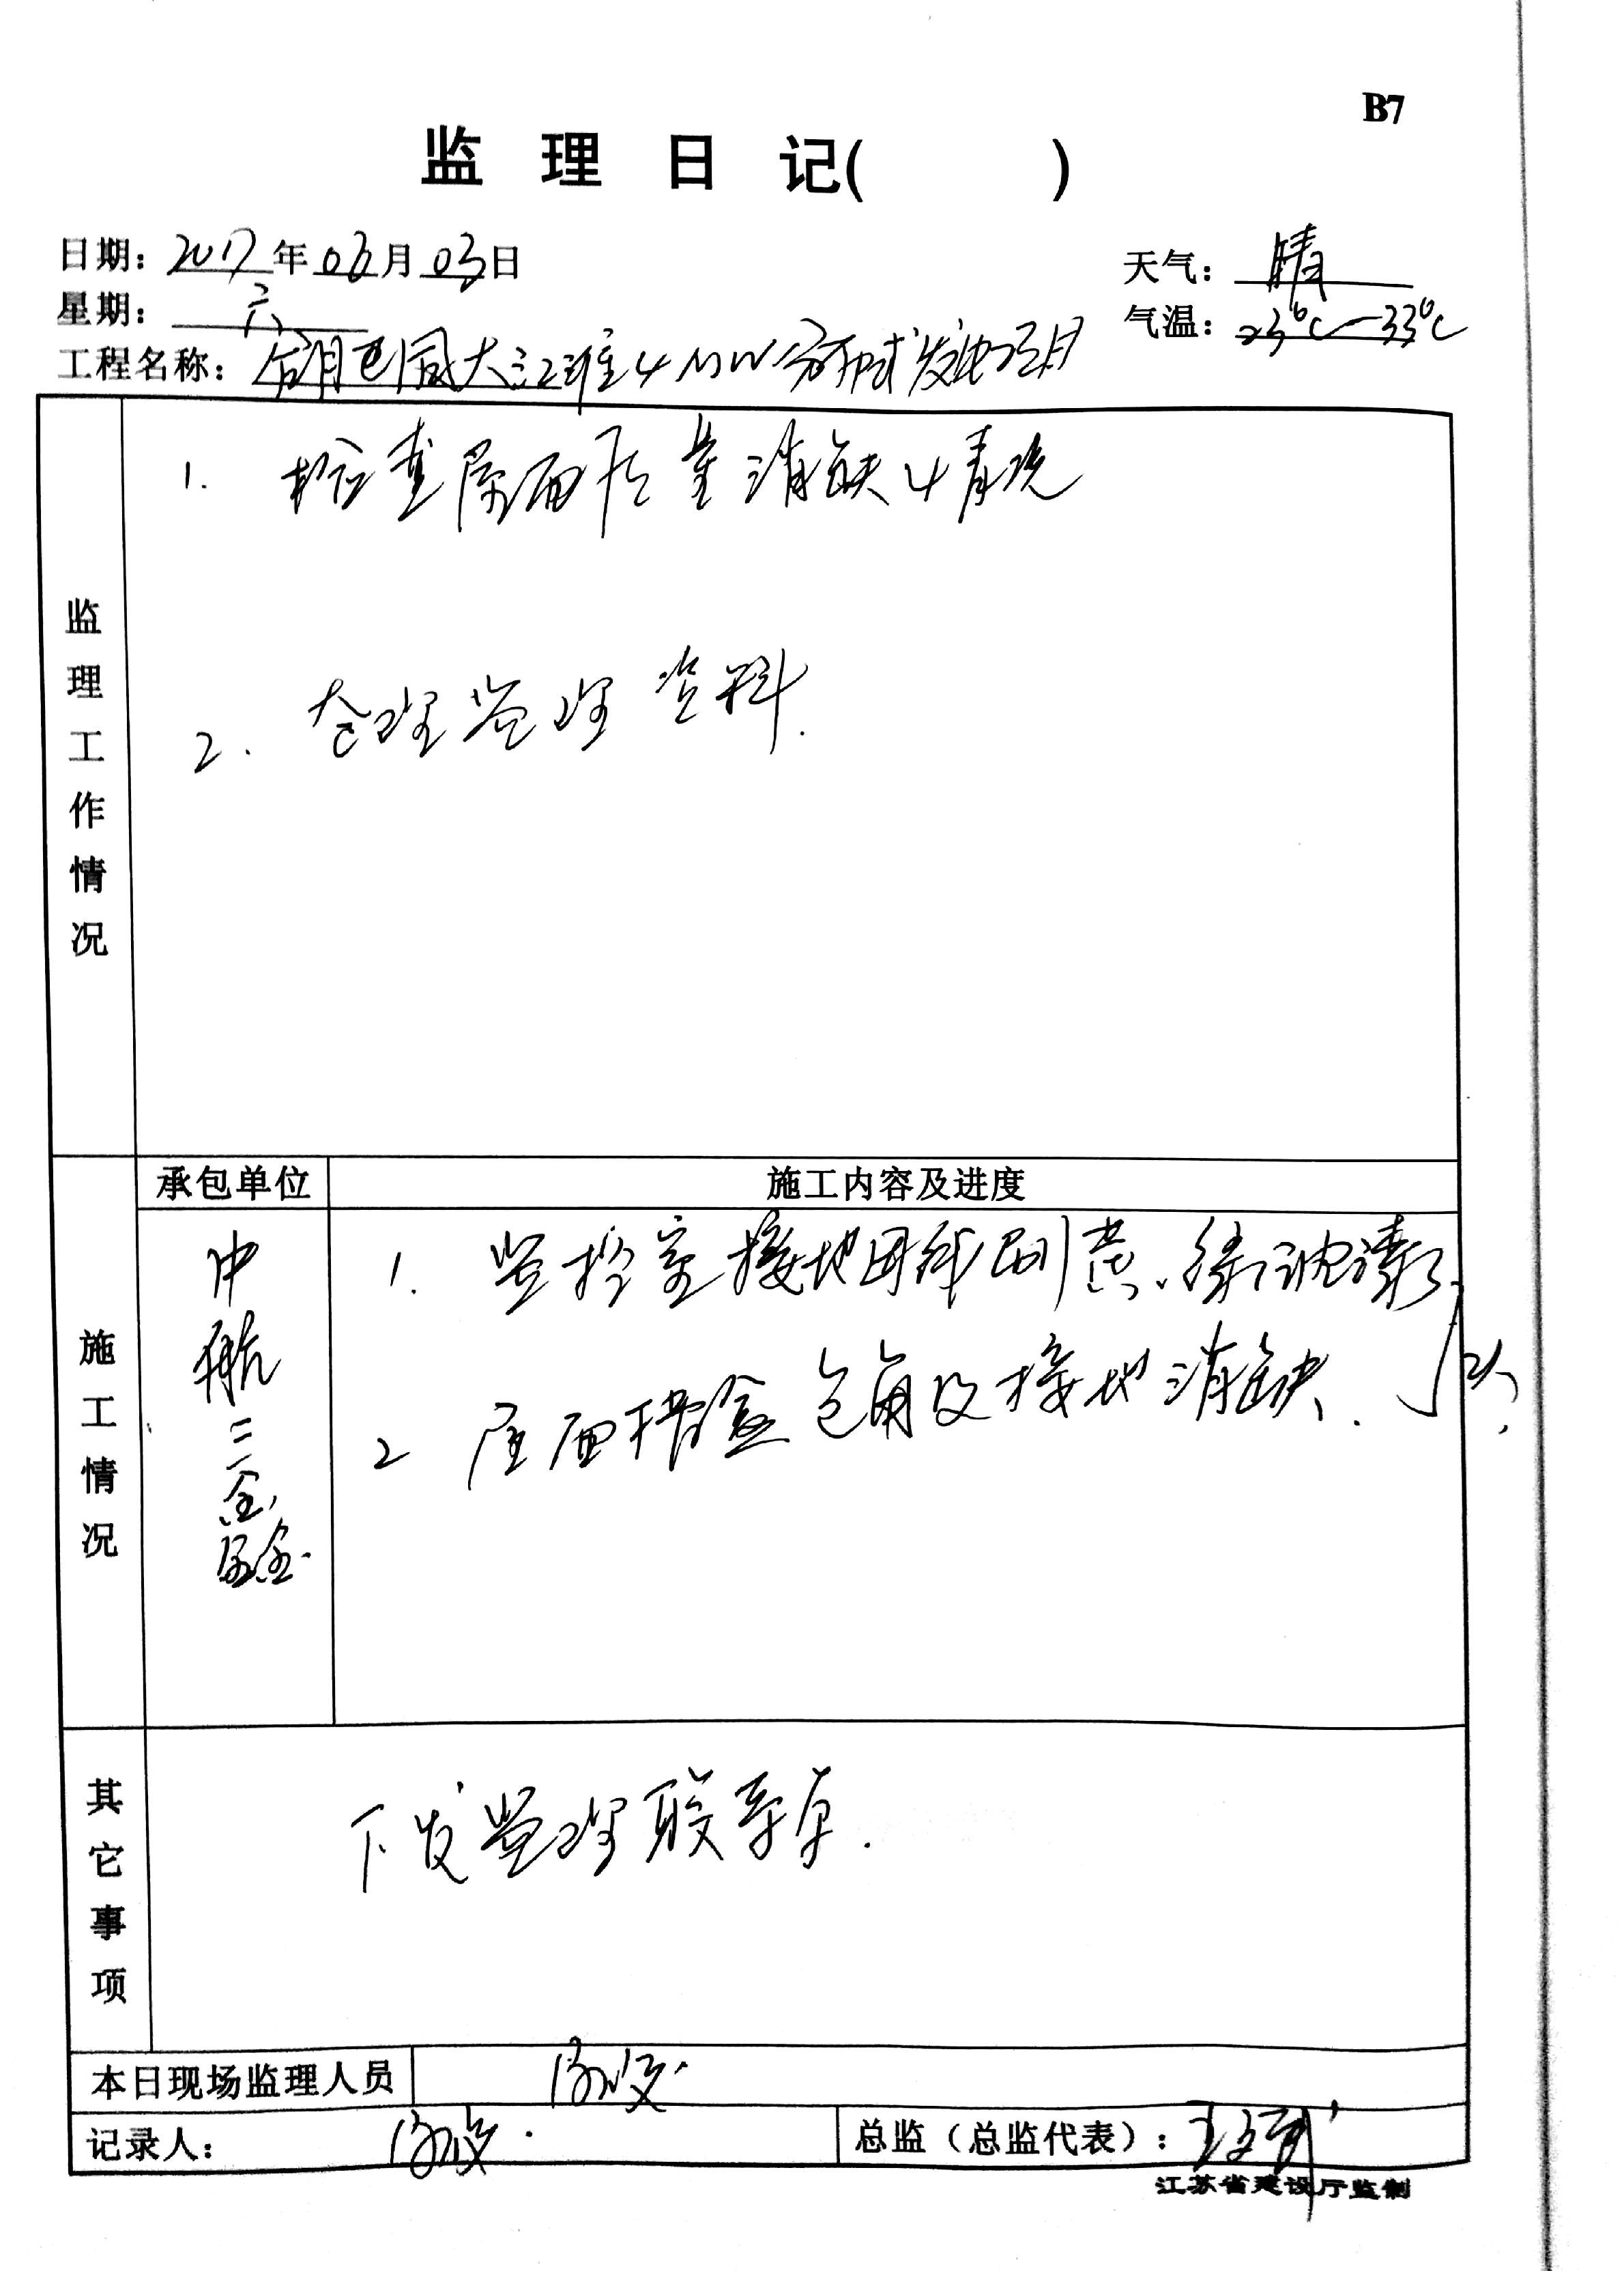 B7
监 理 日 记( )
日期: 2017 年 06 月 03 日
天气: 晴
星期: 六
气温: 23℃—33℃
工程名称: 大江淮4MW分布式发电项目
监理工作情况
1. 检查屋面质量消缺情况
2. 整理监理资料.
承包单位
施工内容及进度
施工情况
中航三鑫
1. 监控室接地母线刷黄、绿油漆
2 屋面桥盒包角及接地消缺、
其它事项
下发监理联系单.
本日现场监理人员
记录人:
总监（总监代表）:
江苏省建设厅监制